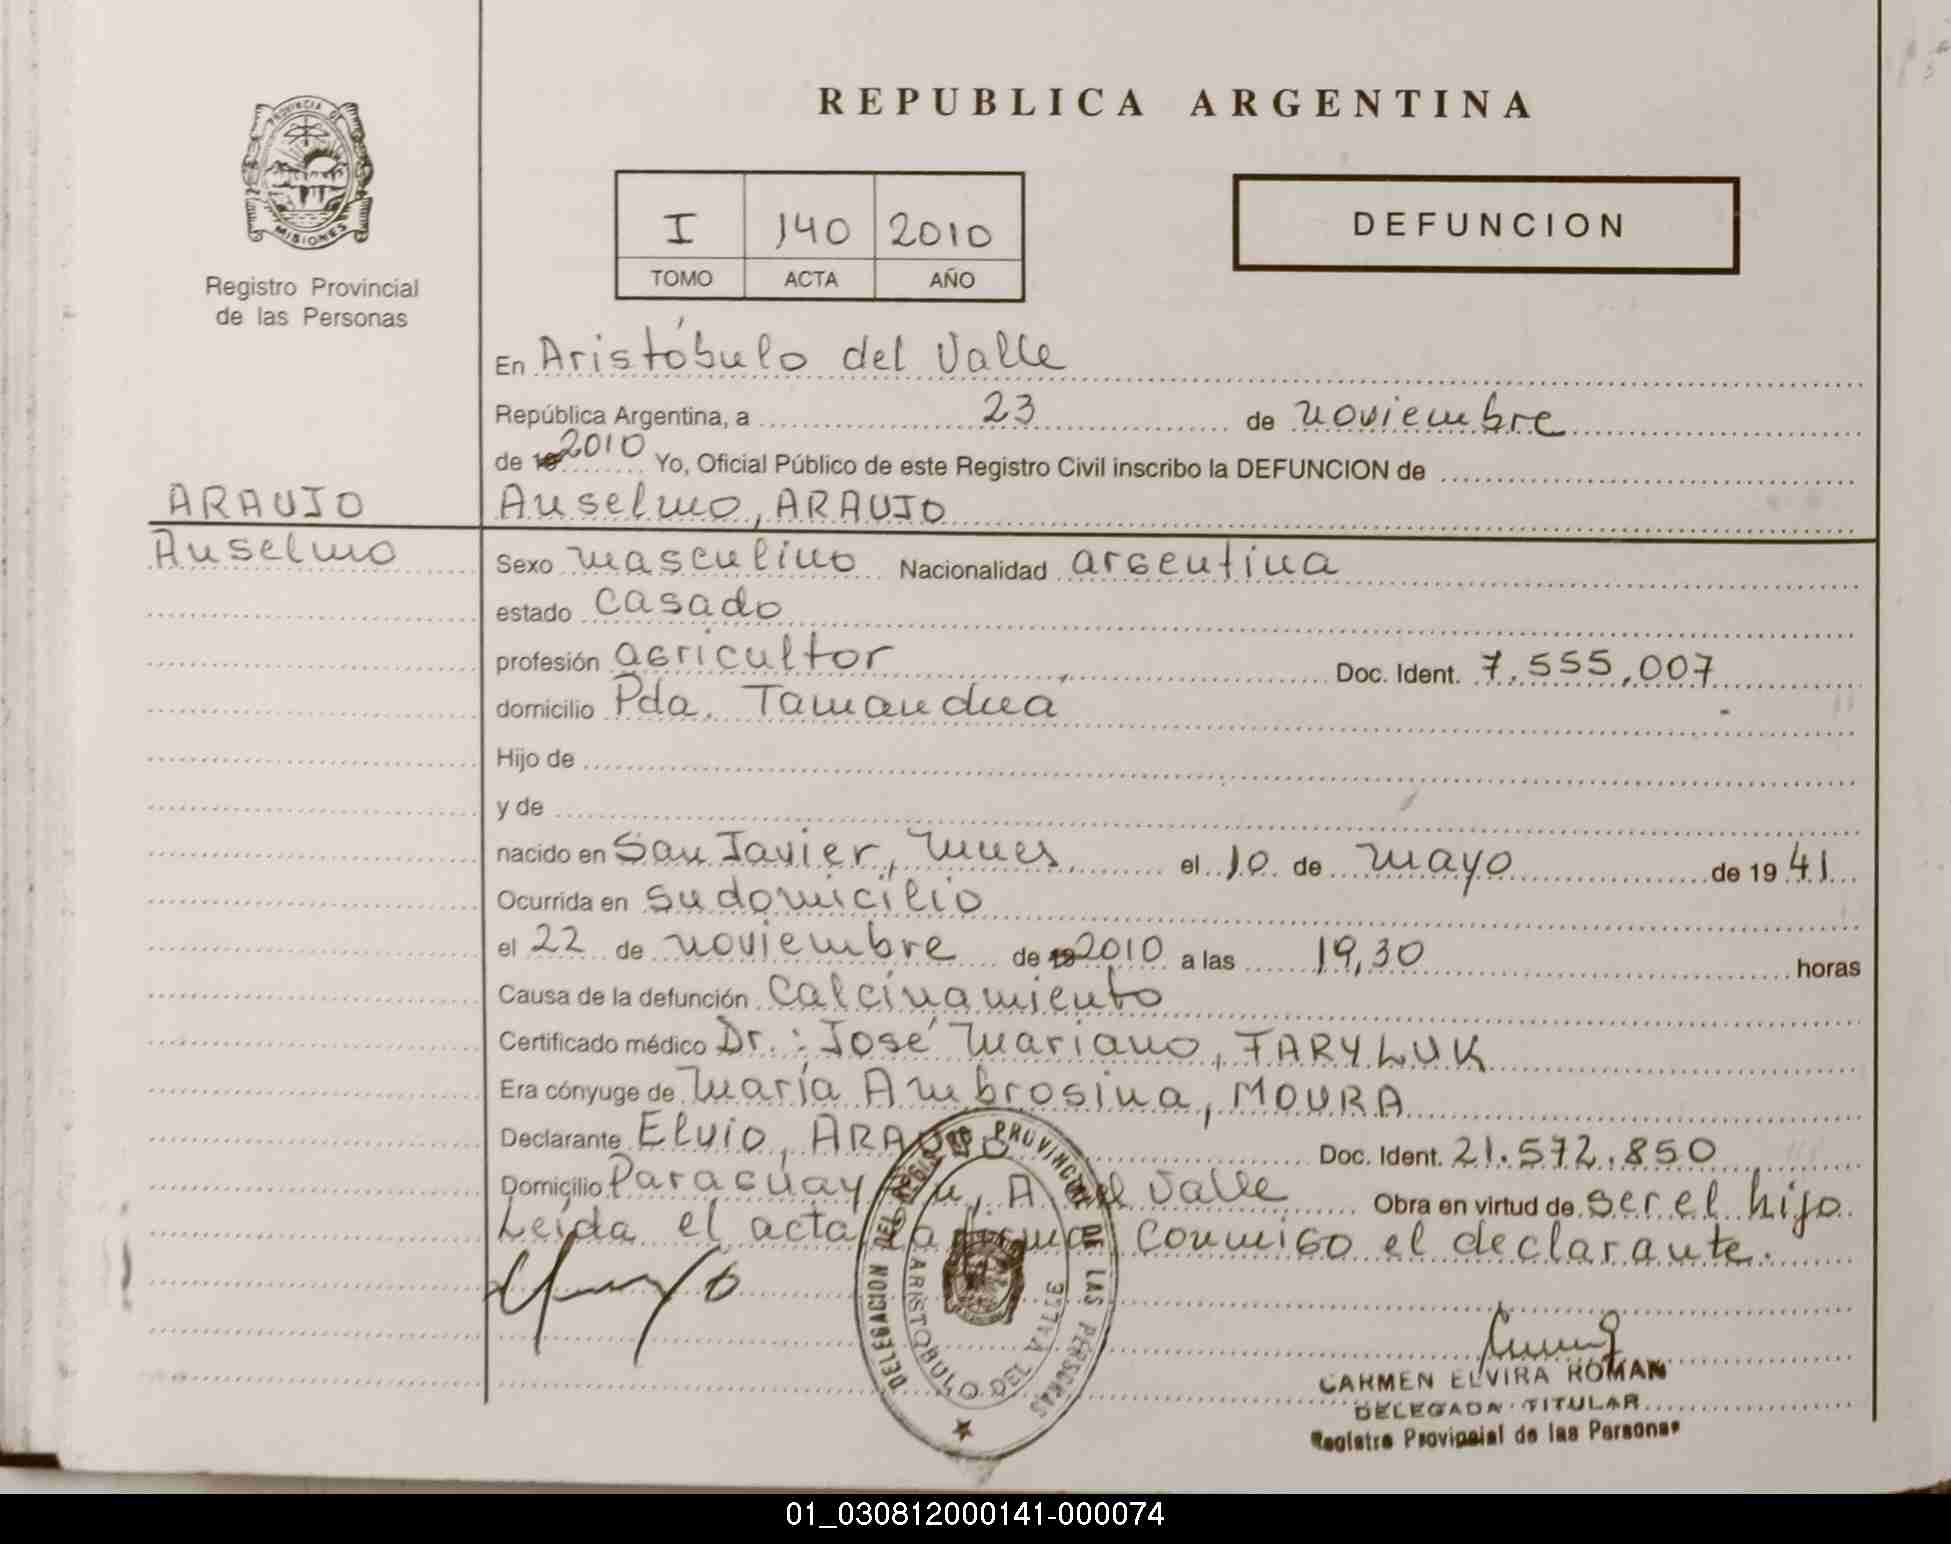 REPUBLICA ARGENTINA
PROVINCIA DE
MISIONES
Registro Provincial
de las Personas
I 140 2010
TOMO ACTA AÑO
DEFUNCION
En Aristóbulo del Valle
República Argentina, a 23 de noviembre
de 19 2010 Yo, Oficial Público de este Registro Civil inscribo la DEFUNCION de
ARAUJO
Anselmo, ARAUJO
Anselmo
Sexo masculino Nacionalidad argentina
estado casado
profesión agricultor Doc. Ident. 7.555.007
domicilio Pda. Tamanduá
Hijo de
y de
nacido en San Javier, Mnes el 10 de mayo de 19 41
Ocurrida en su domicilio
el 22 de noviembre de 19 2010 a las 19,30 horas
Causa de la defunción Calcinamiento
Certificado médico Dr.: José Mariano, TARYLUK
Era cónyuge de María Ambrosina, MOURA
Declarante Elvio, ARAUJO Doc. Ident. 21.572.850
Domicilio Paraguay A del Valle Obra en virtud de ser el hijo
Leída el acta la firma conmigo el declarante.
DELEGACION DEL REGISTRO PROVINCIAL DE LAS PERSONAS
ARISTOBULO DEL VALLE
CARMEN ELVIRA ROMAN
DELEGADA TITULAR
Registro Provincial de las Personas
01_030812000141-000074